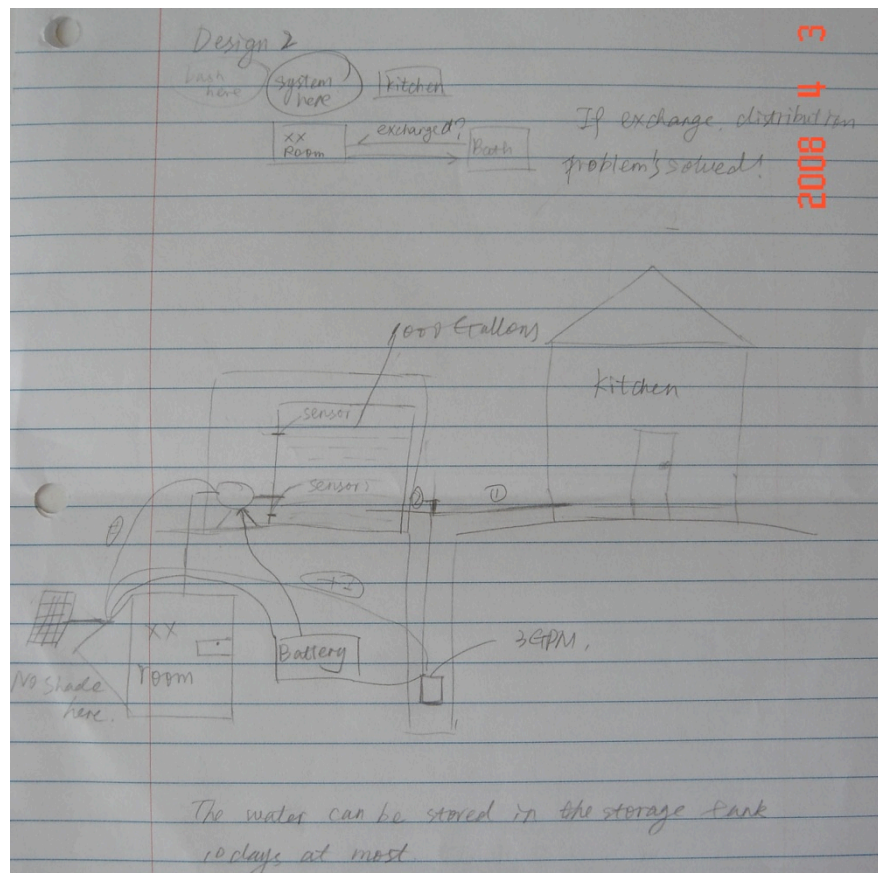 Design 2
Wash here
system here
kitchen
xx Room
exchanged?
Booth
If exchange, distribution
problem's solved!
2008 4 3
1000 Gallons
sensor
sensors
kitchen
②
①
xx room
Battery
No shade
here.
3GPM,
The water can be stored in the storage tank
10 days at most.